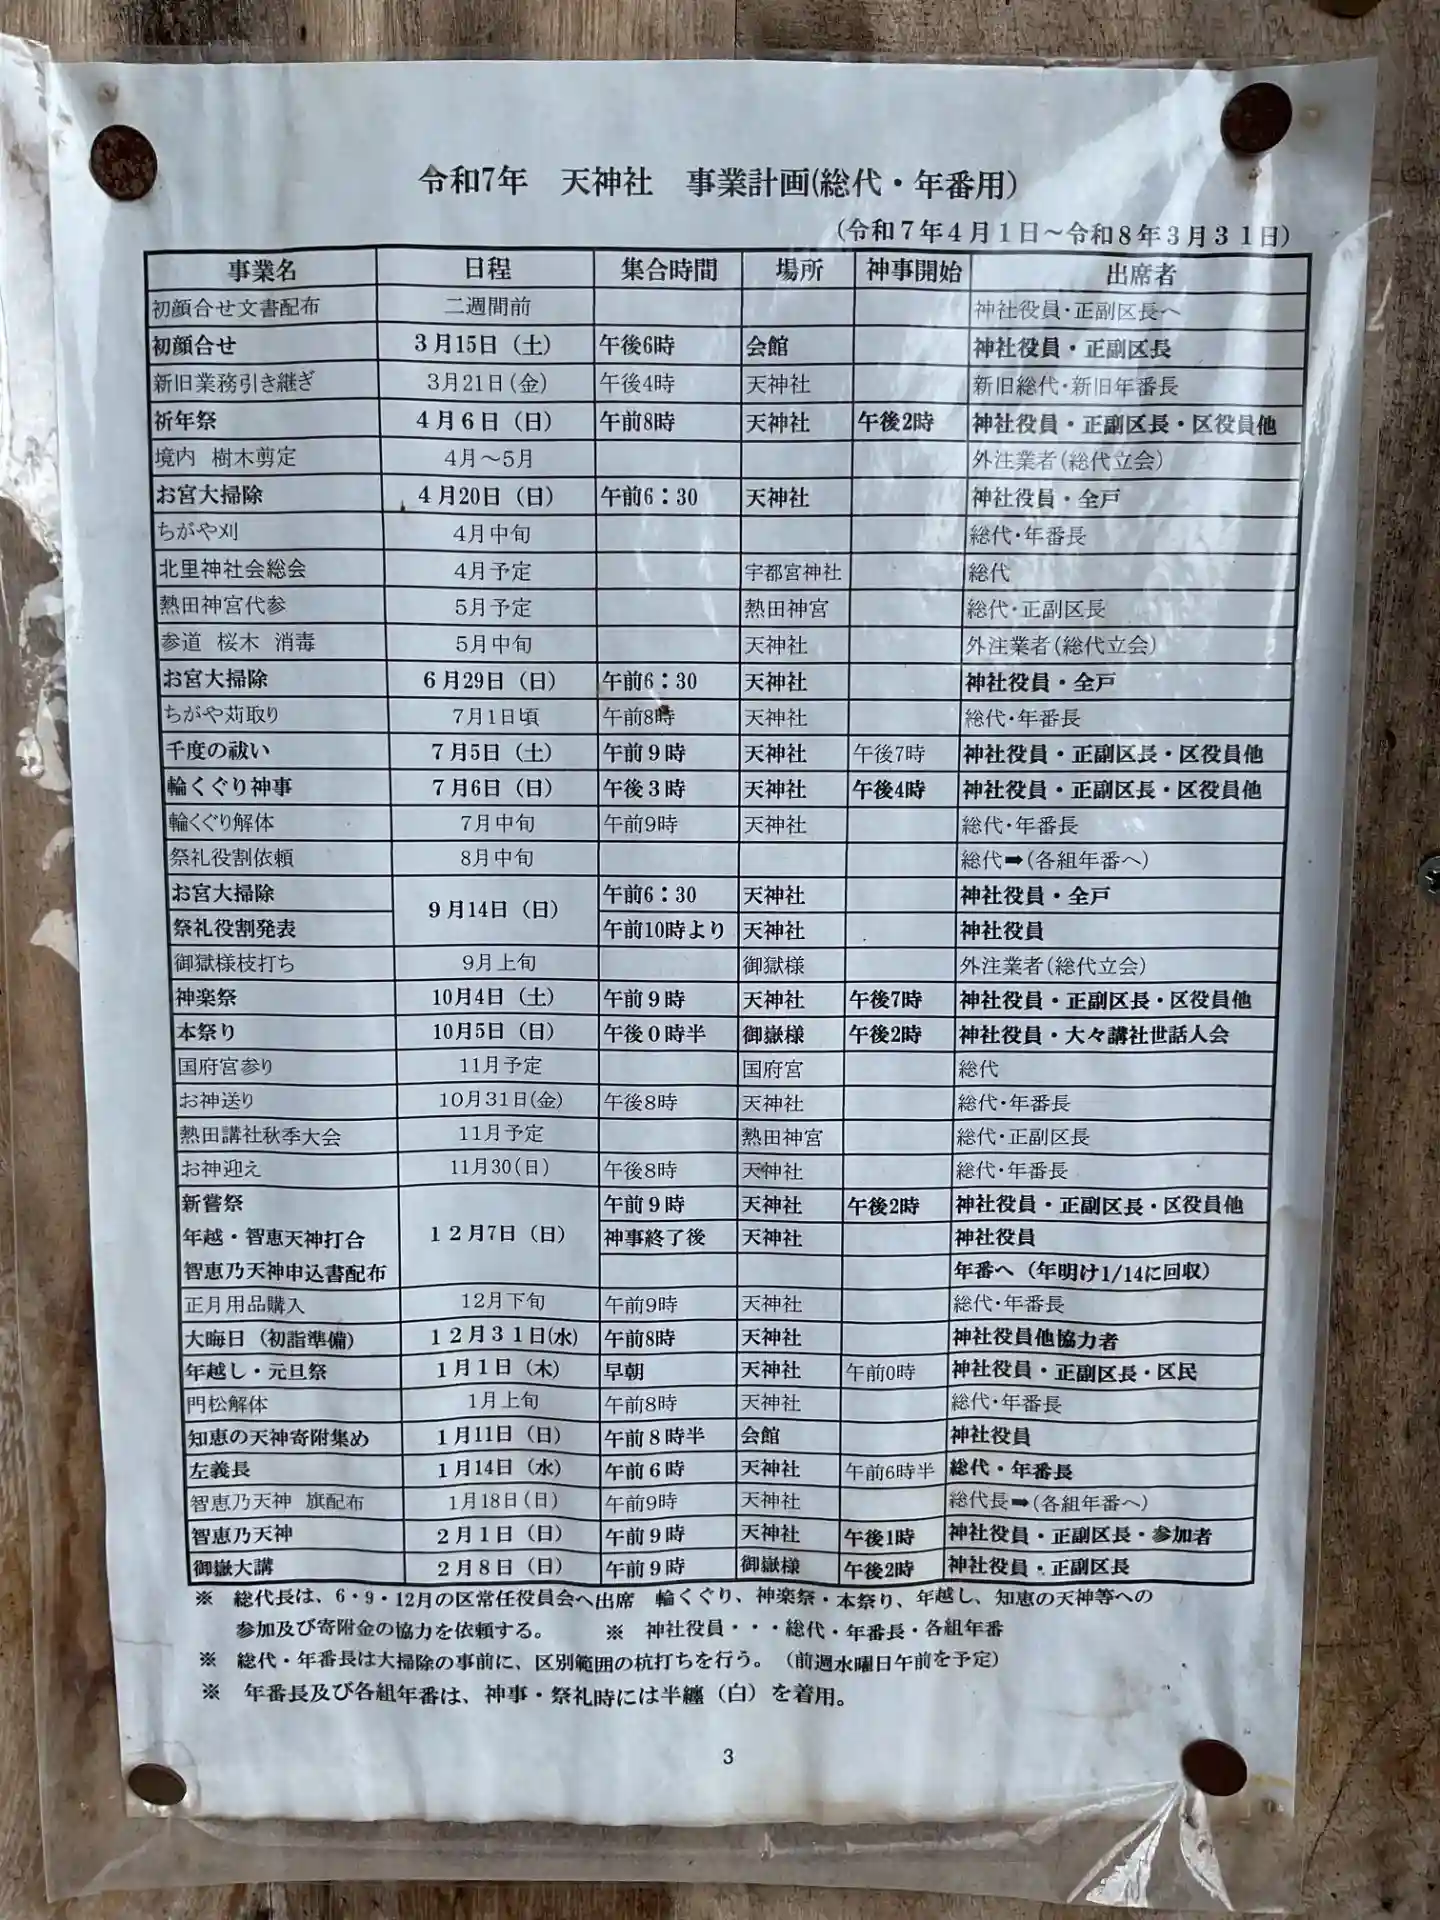 令和7年　天神社　事業計画(総代・年番用)
(令和7年4月1日～令和8年3月31日)
事業名 日程 集合時間 場所 神事開始 出席者
初顔合せ文書配布 二週間前 神社役員・正副区長へ
初顔合せ 3月15日（土） 午後6時 会館 神社役員・正副区長
新旧業務引き継ぎ 3月21日(金) 午後4時 天神社 新旧総代・新旧年番長
祈年祭 4月6日（日） 午前8時 天神社 午後2時 神社役員・正副区長・区役員他
境内　樹木剪定 4月～5月 外注業者(総代立会)
お宮大掃除 4月20日（日） 午前6：30 天神社 神社役員・全戸
ちがや刈 4月中旬 総代・年番長
北里神社会総会 4月予定 宇都宮神社 総代
熱田神宮代参 5月予定 熱田神宮 総代・正副区長
参道　桜木　消毒 5月中旬 天神社 外注業者(総代立会)
お宮大掃除 6月29日（日） 午前6：30 天神社 神社役員・全戸
ちがや苅取り 7月1日頃 午前8時 天神社 総代・年番長
千度の祓い 7月5日（土） 午前9時 天神社 午後7時 神社役員・正副区長・区役員他
輪くぐり神事 7月6日（日） 午後3時 天神社 午後4時 神社役員・正副区長・区役員他
輪くぐり解体 7月中旬 午前9時 天神社 総代・年番長
祭礼役割依頼 8月中旬 総代➡(各組年番へ)
お宮大掃除 9月14日（日） 午前6：30 天神社 神社役員・全戸
祭礼役割発表 午前10時より 天神社 神社役員
御獄様枝打ち 9月上旬 御獄様 外注業者(総代立会)
神楽祭 10月4日（土） 午前9時 天神社 午後7時 神社役員・正副区長・区役員他
本祭り 10月5日（日） 午後0時半 御嶽様 午後2時 神社役員・大々講社世話人会
国府宮参り 11月予定 国府宮 総代
お神送り 10月31日(金) 午後8時 天神社 総代・年番長
熱田講社秋季大会 11月予定 熱田神宮 総代・正副区長
お神迎え 11月30(日) 午後8時 天神社 総代・年番長
新嘗祭 12月7日（日） 午前9時 天神社 午後2時 神社役員・正副区長・区役員他
年越・智恵天神打合 神事終了後 天神社 神社役員
智恵乃天神申込書配布 年番へ（年明け1/14に回収）
正月用品購入 12月下旬 午前9時 天神社 総代・年番長
大晦日（初詣準備） 12月31日(水) 午前8時 天神社 神社役員他協力者
年越し・元旦祭 1月1日（木） 早朝 天神社 午前0時 神社役員・正副区長・区民
門松解体 1月上旬 午前8時 天神社 総代・年番長
知恵の天神寄附集め 1月11日（日） 午前8時半 会館 神社役員
左義長 1月14日（水） 午前6時 天神社 午前6時半 総代・年番長
智恵乃天神　旗配布 1月18日(日) 午前9時 天神社 総代長➡(各組年番へ)
智恵乃天神 2月1日（日） 午前9時 天神社 午後1時 神社役員・正副区長・参加者
御嶽大講 2月8日（日） 午前9時 御嶽様 午後2時 神社役員・正副区長
※　総代長は、6・9・12月の区常任役員会へ出席　輪くぐり、神楽祭・本祭り、年越し、知恵の天神等への
参加及び寄附金の協力を依頼する。　※　神社役員・・・総代・年番長・各組年番
※　総代・年番長は大掃除の事前に、区別範囲の杭打ちを行う。（前週水曜日午前を予定）
※　年番長及び各組年番は、神事・祭礼時には半纏（白）を着用。
3